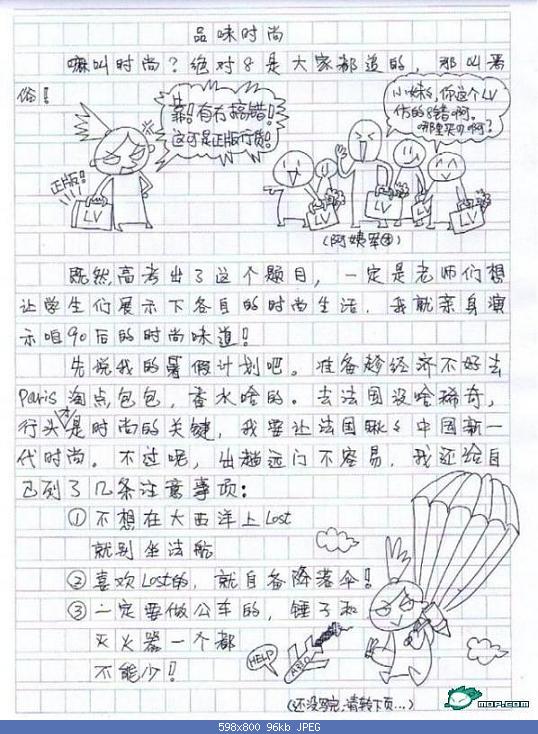 品味时尚
嘛叫时尚？绝对8是大家都追的，那叫恶
俗！
靠！有冇搞错！
这可是正版行货！
正版！
LV
小妹妹，你这个LV
仿的8错啊。
哪里买的啊？
LV
LV
LV
（阿姨军团）
既然高考出了这个题目，一定是老师们想
让学生们展示下各自的时尚生活，我就亲身演
示咱90后的时尚味道！
先说我的暑假计划吧。准备趁经济不好去
Paris淘点包包，香水啥的。去法国没啥稀奇，
行头才是时尚的关键，我要让法国瞅瞅中国新一
代时尚。不过呢，出趟远门不容易，我还给自
己列了几条注意事项：
①不想在大西洋上Lost
就别坐法航
②喜欢Lost的，就自备降落伞！
③一定要做公车的，锤子和
灭火器一个都
不能少！
HELP
A330
（还没写完，请转下页...）
MOP.COM
598x800 96kb JPEG